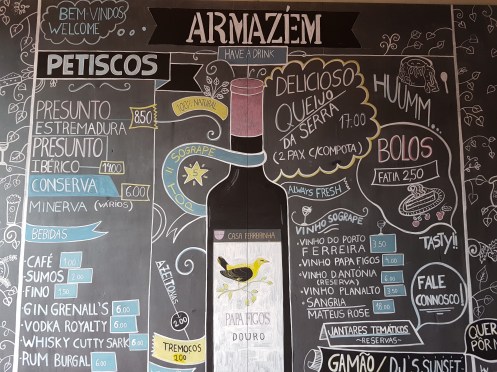 BEM-VINDOS
WELCOME
ARMAZÉM
HAVE A DRINK
PETISCOS
PRESUNTO
ESTREMADURA 850
PRESUNTO
IBÉRICO
CONSERVA
MINERVA (VÁRIOS) 6.00
BEBIDAS
CAFÉ
SUMOS 2.00
FINO
GIN GRENALL'S 6.00
VODKA ROYALTY 6.00
WHISKY CUTTY SARK 6.00
RUM BURGAL 6.00
100% NATURAL
SOGRAPE
AZEITONAS
2.00
TREMOÇOS
2.00
CASA FERREIRINHA
PAPA FIGOS
DOURO
DELICIOSO
QUEIJO
DA
SERRA 17:00
(2 PAX C/COMPOTA)
ALWAYS FRESH
VINHO SOGRAPE
VINHO DO PORTO
FERREIRA 3.50
VINHO PAPA FIGOS
VINHO D'ANTONIA
(RESERVA)
VINHO PLANALTO
SANGRIA
MATEUS ROSE
JANTARES TEMÁTICOS
-RESERVAS-
GAMÃO/DJ'S SUNSET
HUUMM...
BOLOS
FATIA 2,50
TASTY!!
FALE
CONNOSCO!